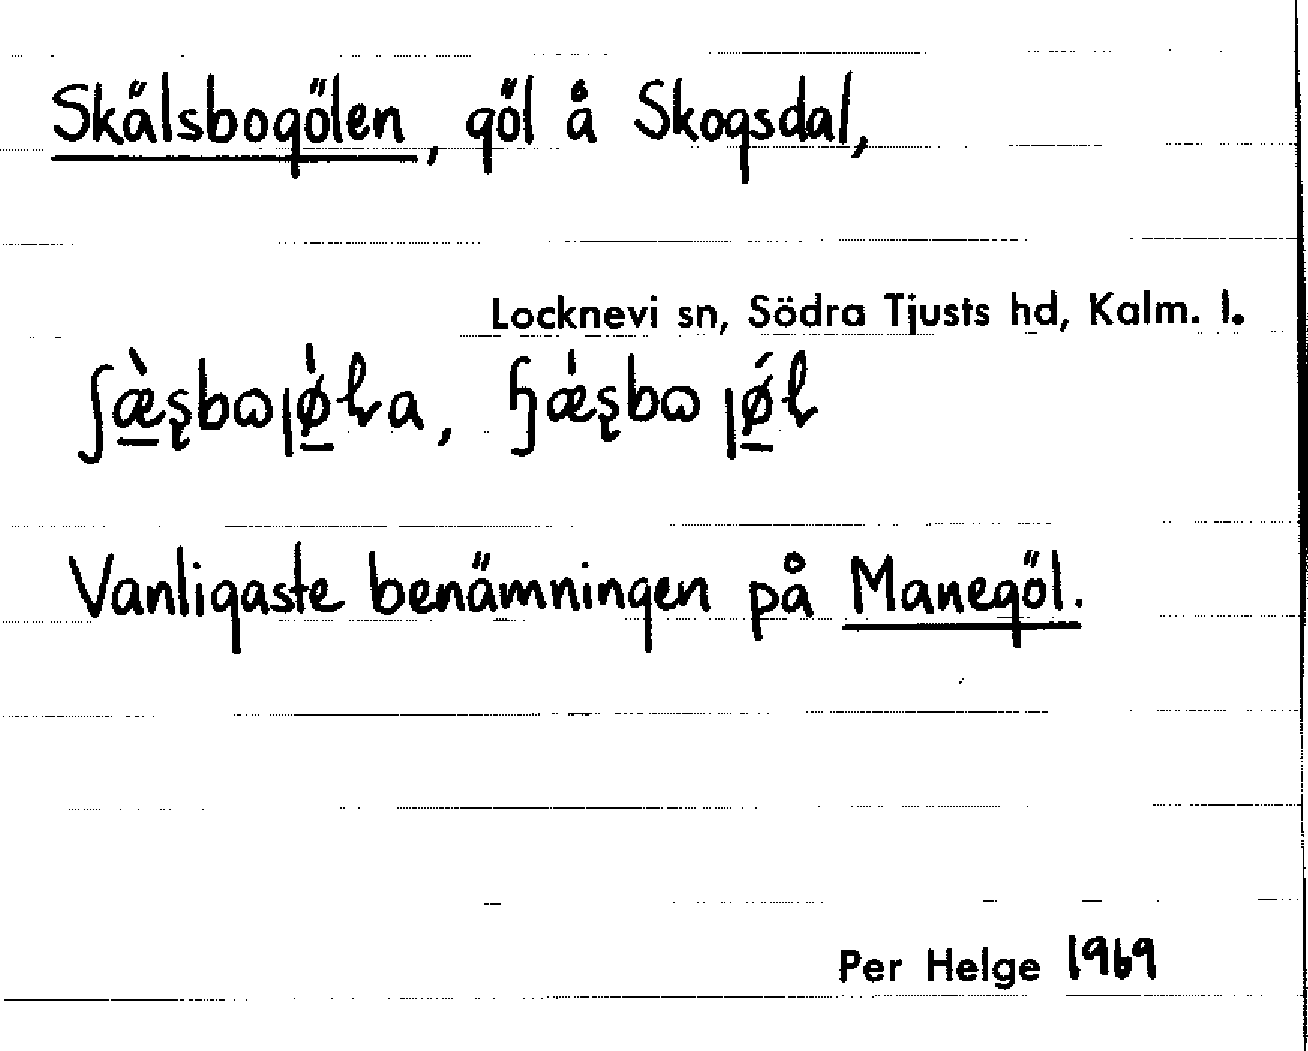 Skälsbogölen, göl å Skogsdal,
Locknevi sn, Södra Tjusts hd, Kalm. l.
Vanligaste benämningen på Manegöl.
Per Helge 1969